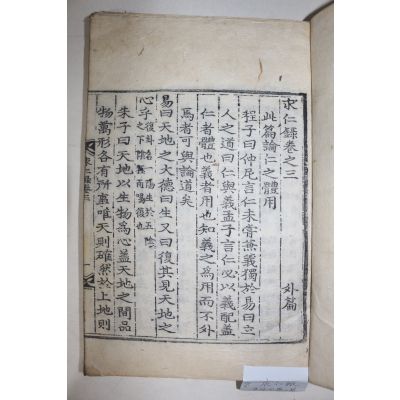 求仁錄卷之三 外篇
此篇論仁之體用
程子曰仲尼言仁未嘗兼義獨於易曰立
人之道曰仁與義孟子言仁必以義配盖
仁者體也義者用也知義之為用而不外
焉者可與論道矣
易曰天地之大德曰生又曰復其見天地之
心乎 復卦名 陽生於五陰之下陰極而陽復也
朱子曰天地以生物為心盖天地之間品
物萬形各有所事唯天則確然於上地則
求仁錄卷三